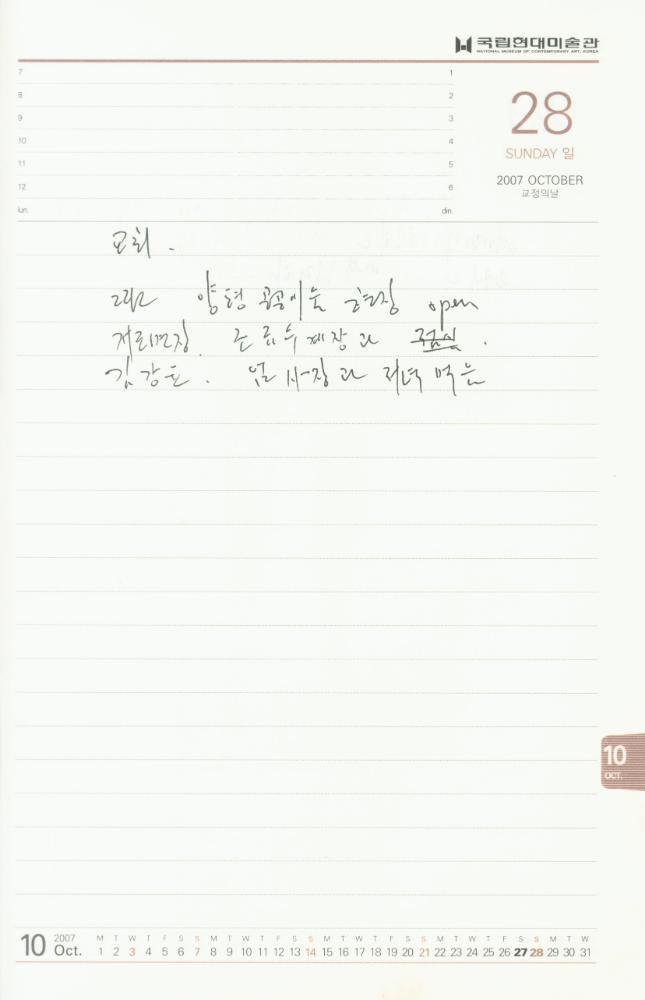 국립현대미술관
NATIONAL MUSEUM OF CONTEMPORARY ART, KOREA
7
8
9
10
11
12
lun.
1
2
3
4
5
6
din.
28
SUNDAY 일
2007 OCTOBER
교정의날
교회 .
양평 공공미술 현장 open
장과 점심 .
김강 . 엄사장과 저녁 먹음
10
OCT.
10 2007 Oct.
M T W T F S S M T W T F S S M T W T F S S M T W T F S S M T W
1 2 3 4 5 6 7 8 9 10 11 12 13 14 15 16 17 18 19 20 21 22 23 24 25 26 27 28 29 30 31